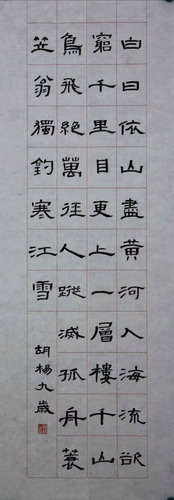 白日依山盡黃河入海流欲
窮千里目更上一層樓千山
鳥飛絕萬徑人蹤滅孤舟蓑
笠翁獨釣寒江雪
胡楊九歲